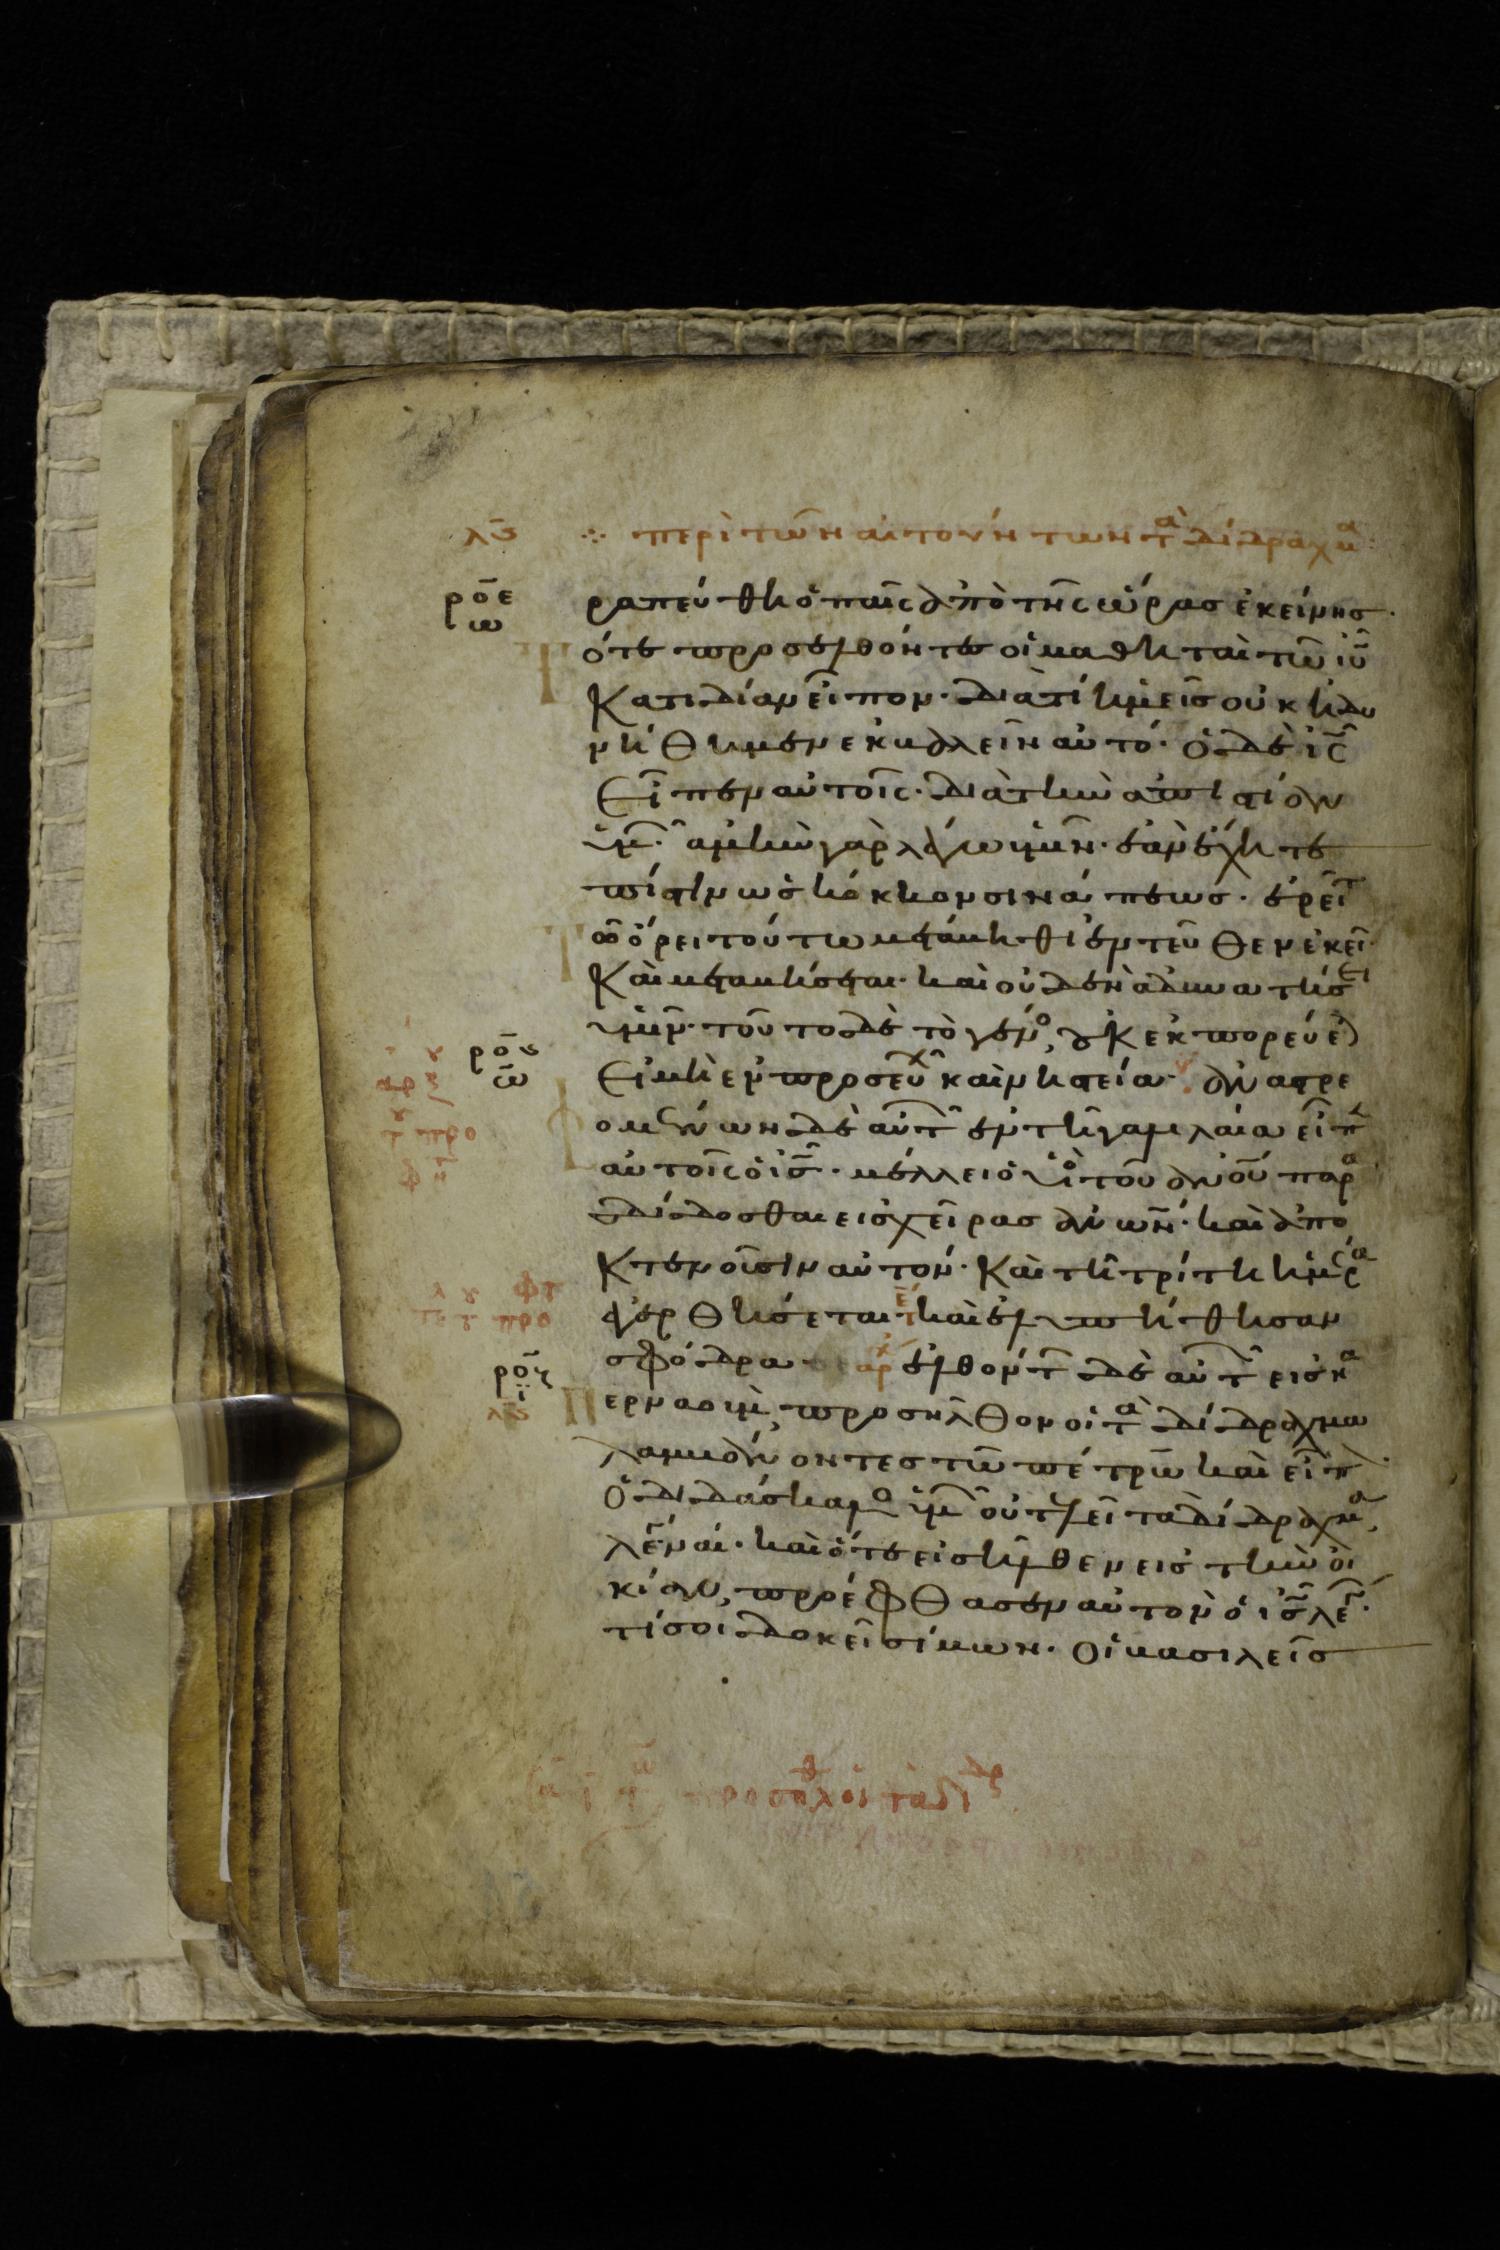 λϛ ⁘ περὶ τῶν αἰτούντων τὰ δίδραχμα:
ρο̅ε ραπεύθη ὁ παῖς ἀπὸ τῆς ὥρας ἐκείνης·
ω Τότε προσελθόντες οἱ μαθηταὶ τῶ ἰῦ
κατιδίαν εἶπον· διατί ἡμεῖς οὐκ ἠδυ
νήθημεν ἐκβαλεῖν αὐτό· ὁ δὲ ἰς̅
εἶπεν αὐτοῖς· διὰ τὴν ἀπιστίαν
ὑμ· ἀμὴν γὰρ λέγω ὑμῖν· ἐὰν ἔχητε
πίστιν ὡς κόκκον σινάπεως· ἐρεῖτ
τῶ ὄρει τούτω μετάβηθι ἐντεῦθεν ἐκεῖ·
καὶ μεταβήσεται· καὶ οὐδὲν ἀδυνατήσει
ὑμῖν· τοῦτο δὲ τὸ γένο, οὐκ ἐκπορεύε)
ρο̅ϛ εἰ μὴ ἐν προσευχ καὶ νηστεία· ἀναστρε
ω̅ φομένων δὲ αὐτ ἐν τῆ γαλιλαία εἶπ
αὐτοῖς ὁ ἰς̅· μέλλει ὁ υἱὸ τοῦ ἀνο̅υ παρα
δίδοσθαι εἰς χεῖρας ἀνω̅ν· καὶ ἀπο
κτενοῦσιν αὐτόν· Καὶ τῆ τρίτη ἡμέρα
ἐγερθήσεται· καὶ ἐλυπήθησαν
σφόδρα· ἀρχ ἐλθόντ δὲ αὐτ εἰς κα
ρο̅ζ ι περναουμ, προσῆλθον οἱ τὰ δίδραχμα
λϛ λαμβάνοντες τῶ πέτρω καὶ εἶπ·
ὁ διδάσκαλο ὑμ οὐ τελεῖ τὰ δίδραχμα,
λέ ναί· καὶ ὅτε εἰσῆλθεν εἰς τὴν οἰ
κίαν, προέφθασεν αὐτὸν ὁ ἰς̅ λέγ·
τί σοι δοκεῖ σίμων· οἱ βασιλεῖς